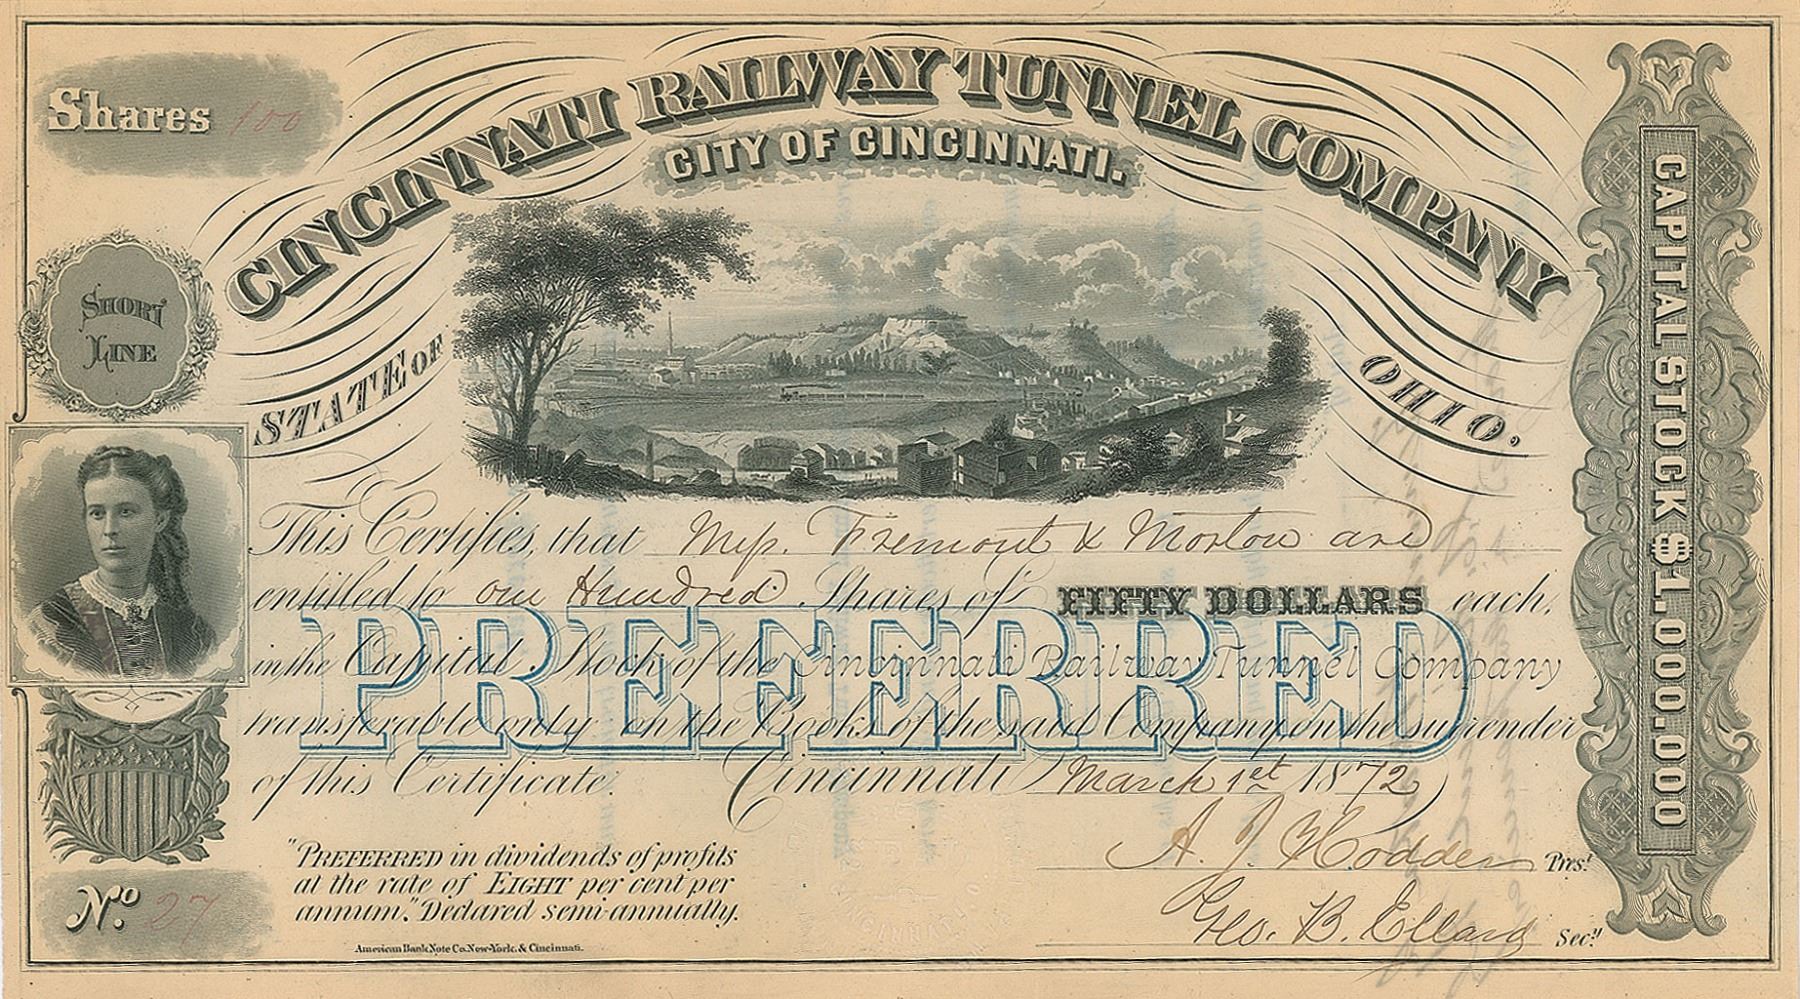 Shares 100
CINCINNATI RAILWAY TUNNEL COMPANY
CITY OF CINCINNATI.
STATE OF OHIO.
SHORT
LINE
This Certifies, that Mess. Fremont & Morton are
entitled to One Hundred Shares of FIFTY DOLLARS each,
in the Capital Stock of the Cincinnati Railway Tunnel Company
transferable only on the Books of the said Company on the surrender
of this Certificate. Cincinnati March 1st 1872
PREFERRED
A. J. Hodder Prest
Geo. B. Ellard Secy
"PREFERRED in dividends of profits
at the rate of EIGHT per cent per
annum." Declared semi-annually.
No. 27
American Bank Note Co. New-York. & Cincinnati.
CAPITAL STOCK $1.000.000